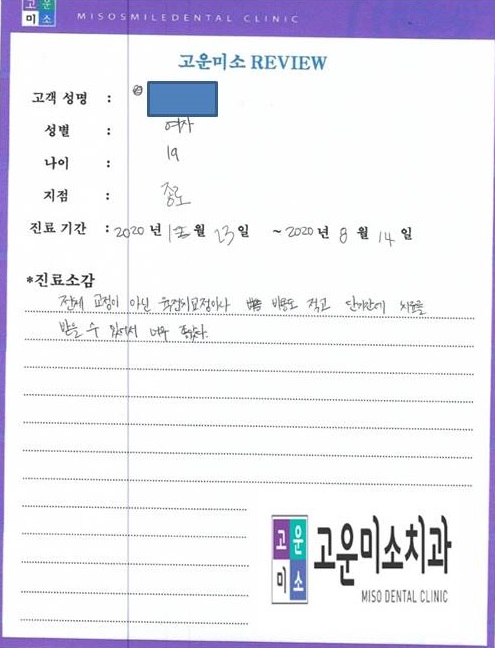 고운
미소
MISOSMILEDENTAL CLINIC
고운미소 REVIEW
고객 성명 :
성별 : 여자
나이 : 19
지점 : 종로
진료 기간 : 2020 년 1 월 23 일 ~ 2020 년 8 월 14 일
*진료소감
전체 교정이 아닌 교정이라 비용도 적고 단기간에 치료를
받을 수 있어서 너무 좋았다.
고운
미소
고운미소치과
MISO DENTAL CLINIC